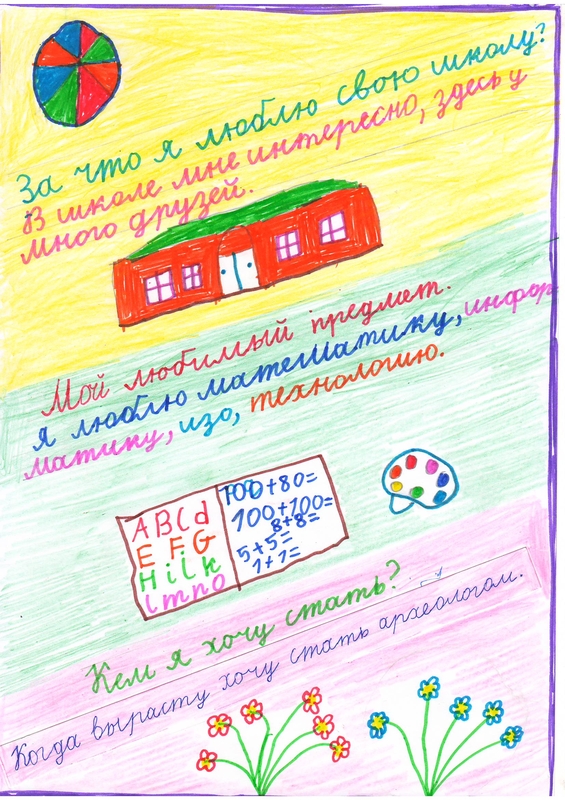 За что я люблю свою школу?
В школе мне интересно, здесь у
много друзей.
Мой любимый предмет.
я люблю математику, инфор
матику, изо, технологию.
ABCd
EFG
Hilk
lmno
100+80=
100+100=
8+8=
5+5=
1+1=
Кем я хочу стать?
Когда вырасту хочу стать археологом.